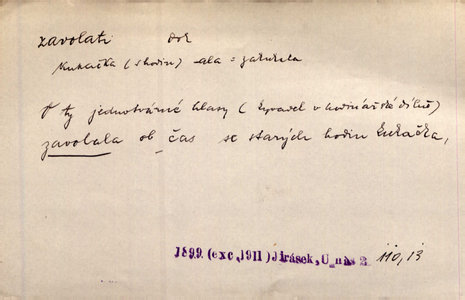 zavolati dok
Kukačka (s hodin) -ala = zakukala
V ty jednotvárné hlasy (kyvadel v hodinářské dílně)
zavolala ob čas se starých hodin kukačka,
1899.(exc.1911) Jirásek, U nás 2 110,13